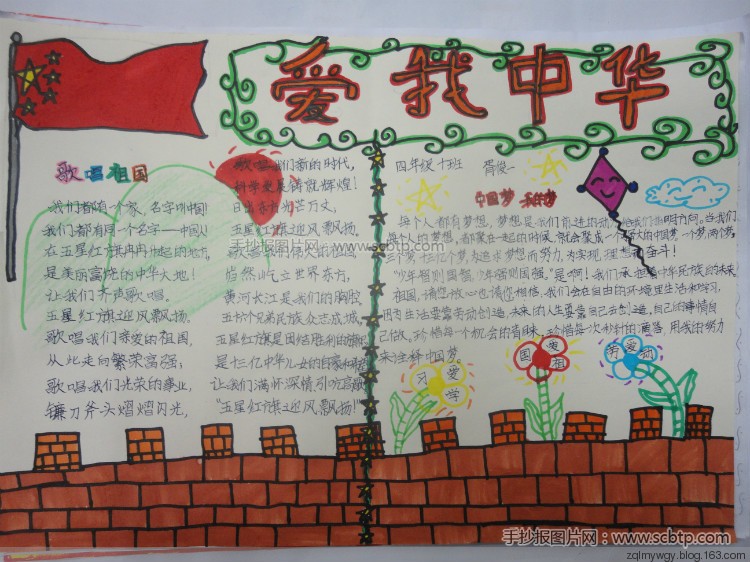 爱我中华
歌唱祖国
我们都有一个家,名字叫中国!
我们都有同一个名字——中国人!
在五星红旗冉冉升起的地方,
是美丽富饶的中华大地!
让我们齐声歌唱。
五星红旗迎风飘扬.
歌唱我们亲爱的祖国,
从此走向繁荣富强;
歌唱我们光荣的事业,
镰刀斧头熠熠闪光,
歌唱我们新的时代,
科学发展铸就辉煌!
日出东方为芒万丈,
五星红旗迎风飘扬.
歌唱我们伟大的祖国
岿然屹立世界东方,
黄河长江是我们的胸腔
五十六个兄弟民族众志成城,
五星红旗是团结胜利的旗
是十三亿中华儿女的自豪和
让我们满怀深情引吭高歌
"五星红旗迎风飘扬!"
四年级十班 胥俊一
中国梦 我的梦
每个人都有梦想,梦想是我们前进的动力,给我们指明方向,当我们
每个人的梦想,都聚在一起的时候,就会聚成一个大的中国梦,一个梦,两个梦,
三个梦,十亿个梦,为追求梦想而努力,为实现理想而奋斗!
"少年智则国智,少年强则国强。"是啊!我们承担着中华民族的未来
祖国,请您放心也请您相信,我们会在自由的环境里生活和学习.
因为生活要靠劳动创造,未来的人生要靠自己去创造,自己的事情自
己做。珍惜每一个机会的青睐,珍惜每一次木材的演唱,用我的努力
来诠释中国梦。
爱学习
爱祖国
爱劳动
手抄报图片网:www.scbtp.com
手抄报图片网:www.scbtp.com
zqlmywgy.blog.163.com